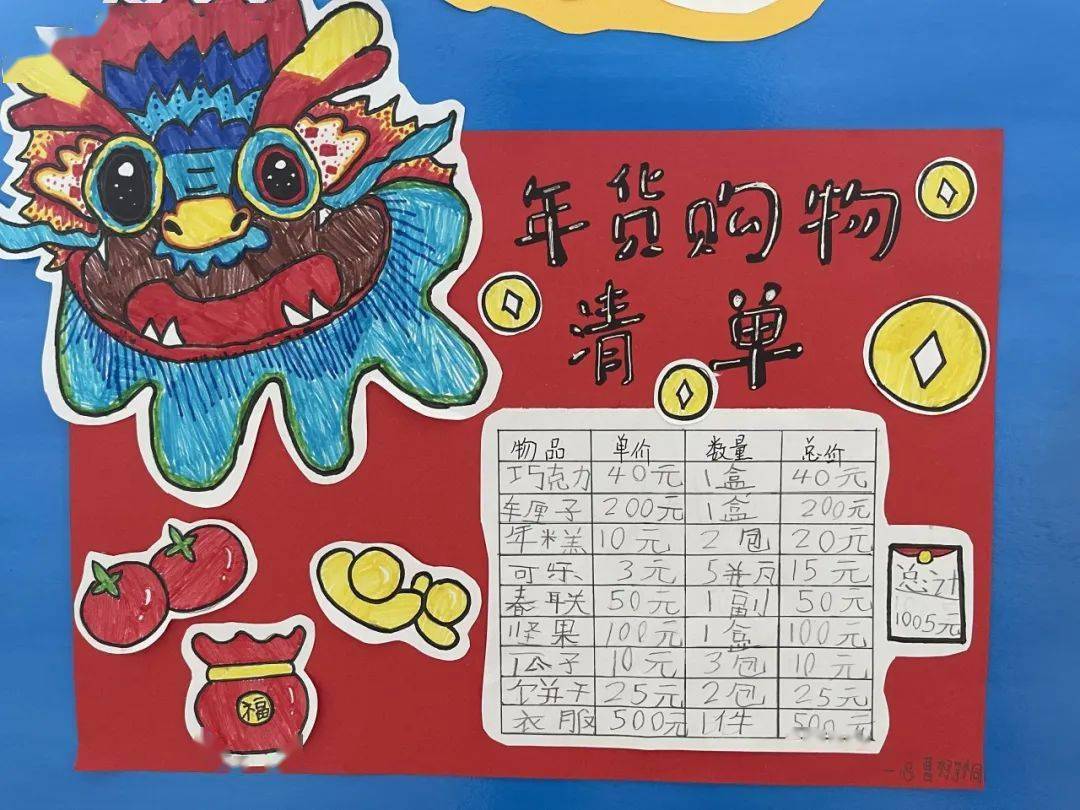 年货购物
清单
物品 单价 数量 总价
巧克力 40元 1盒 40元
车厘子 200元 1盒 200元
年糕 10元 2包 20元
可乐 3元 5瓶 15元
春联 50元 1副 50元
坚果 100元 1盒 100元
瓜子 10元 3包 10元
饼干 25元 2包 25元
衣服 500元 1件 500元
总计
1005元
福